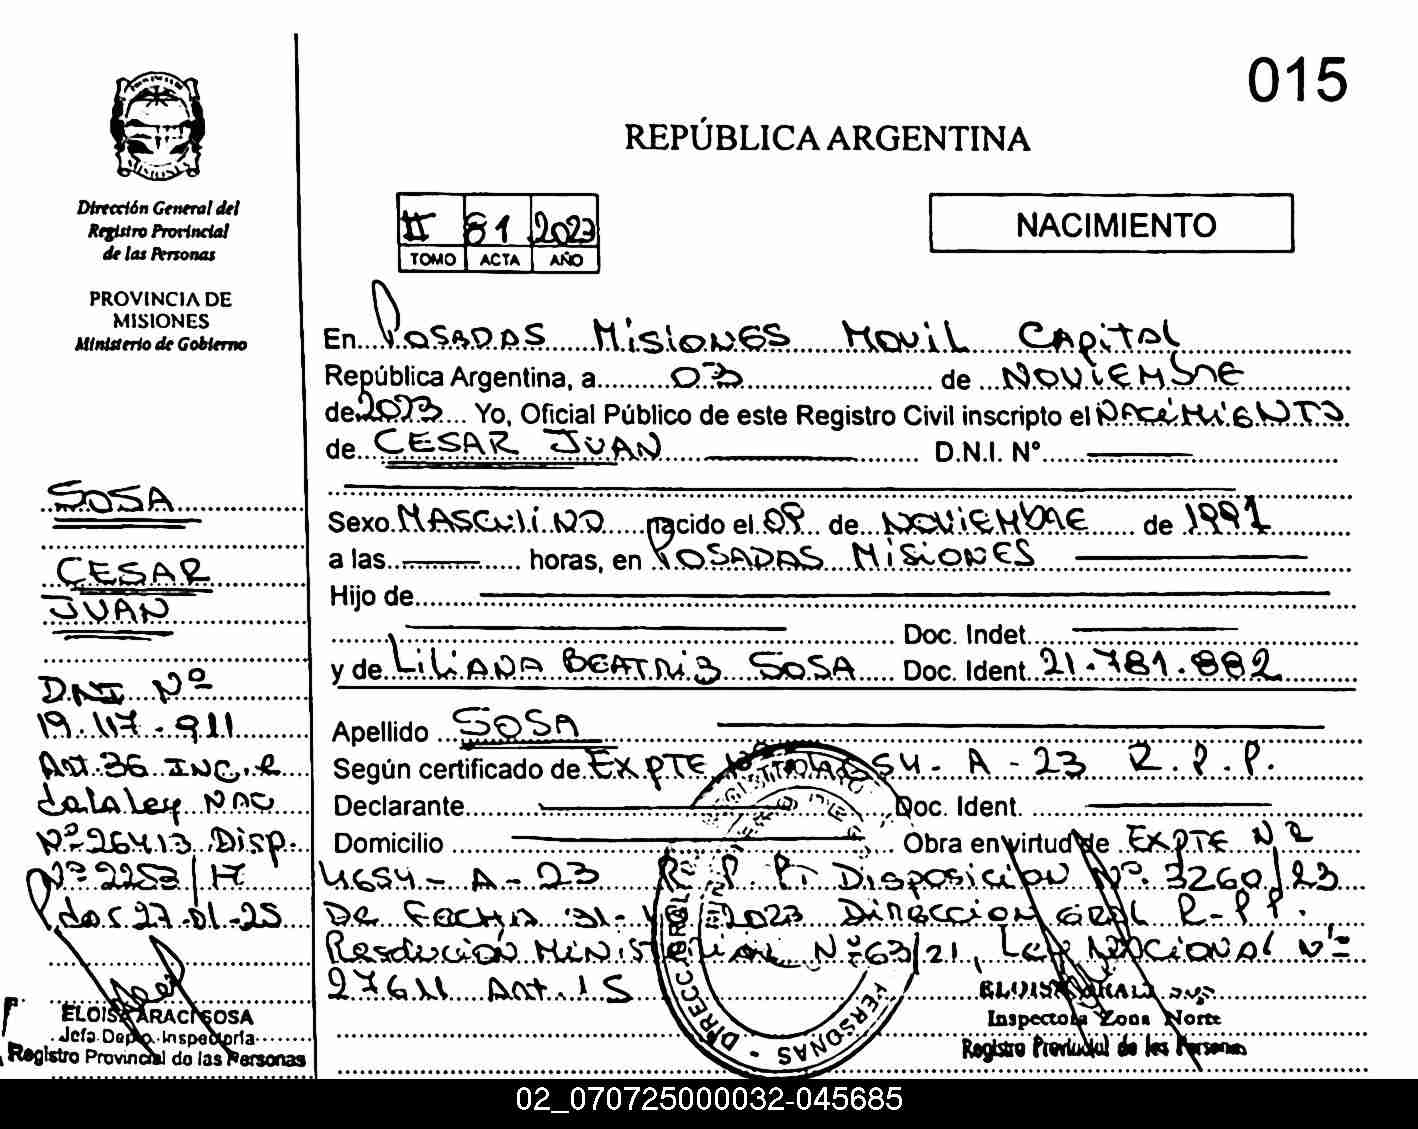 015
REPÚBLICA ARGENTINA
Dirección General del
Registro Provincial
de las Personas
PROVINCIA DE
MISIONES
Ministerio de Gobierno
II 81 2023
TOMO ACTA AÑO
NACIMIENTO
En Posadas Misiones Movil Capital
República Argentina, a 03 de Noviembre
de 2023 Yo, Oficial Público de este Registro Civil inscripto el Nacimiento
de CESAR JUAN D.N.I. N°
Sexo Masculino nacido el 09 de Noviembre de 1991
a las horas, en Posadas Misiones
Hijo de
Doc. Indet.
y de Liliana Beatriz Sosa Doc. Ident. 21.781.882
Apellido SOSA
Según certificado de Expte Nº 4654-A-23 R.P.P.
Declarante Doc. Ident.
Domicilio Obra en virtud de Expte Nº
4654-A-23 R.P.P. Disposicion Nº 3260/23
De Fecha 31-10-2023 Direccion Gral R.P.P.
Resolución Ministerial Nº 63/21, Ley Nacional Nº
27611 Art. 15
SOSA
CESAR
JUAN
DNI Nº
19.117.911
Art. 36 INC. 
de la Ley NAC
Nº 26413 Disp.
Nº 2253/17
27-01-25
ELOISA ARACI SOSA
Jefa Depto. Inspectoría
Registro Provincial de las Personas
ELOISA ARACI SOSA
Inspectora Zona Norte
Registro Provincial de las Personas
02_070725000032-045685